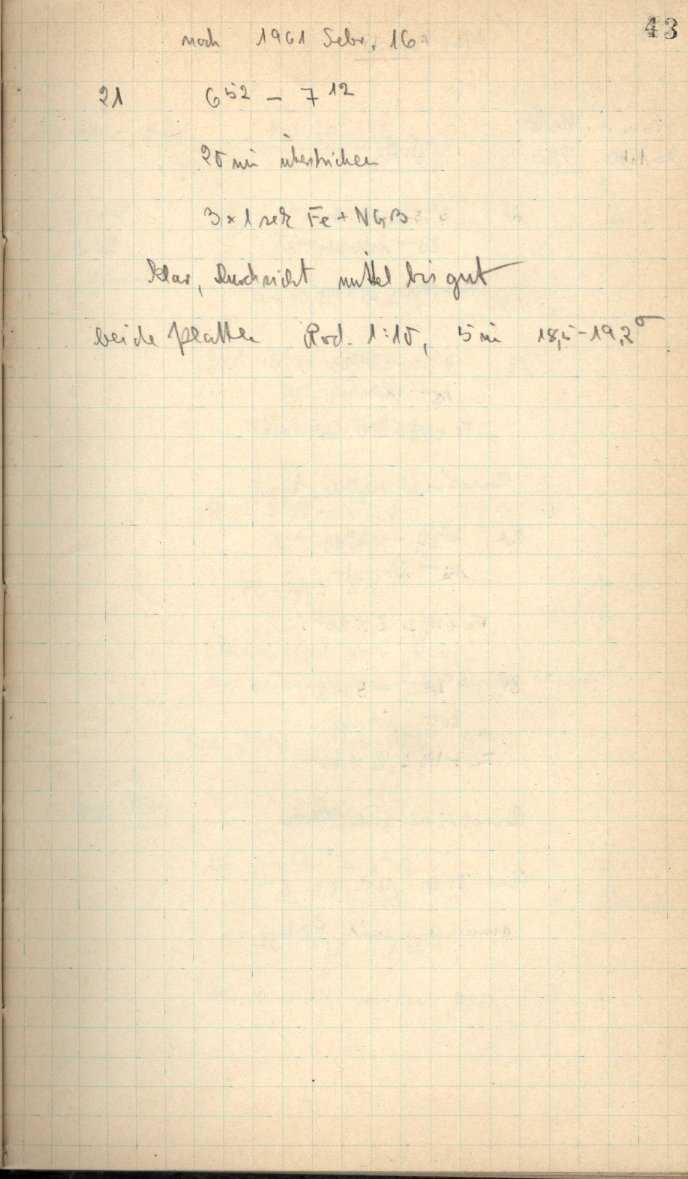 43
noch 1961 Febr. 16
21 6 52 – 7 12
20 min überstrichen
3 x 1 sek Fe + NGB
klar, Durchsicht mittel bis gut
beide Platten Rod. 1:10, 5 min 18,5–19,2°